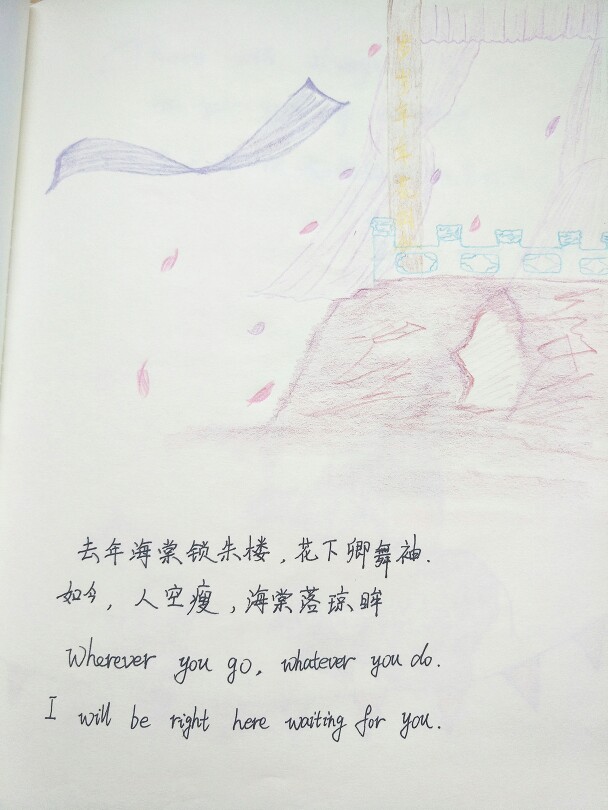 去年海棠锁朱楼,花下卿舞袖.
如今,人空瘦,海棠落琼眸
Wherever you go, whatever you do.
I will be right here waiting for you.